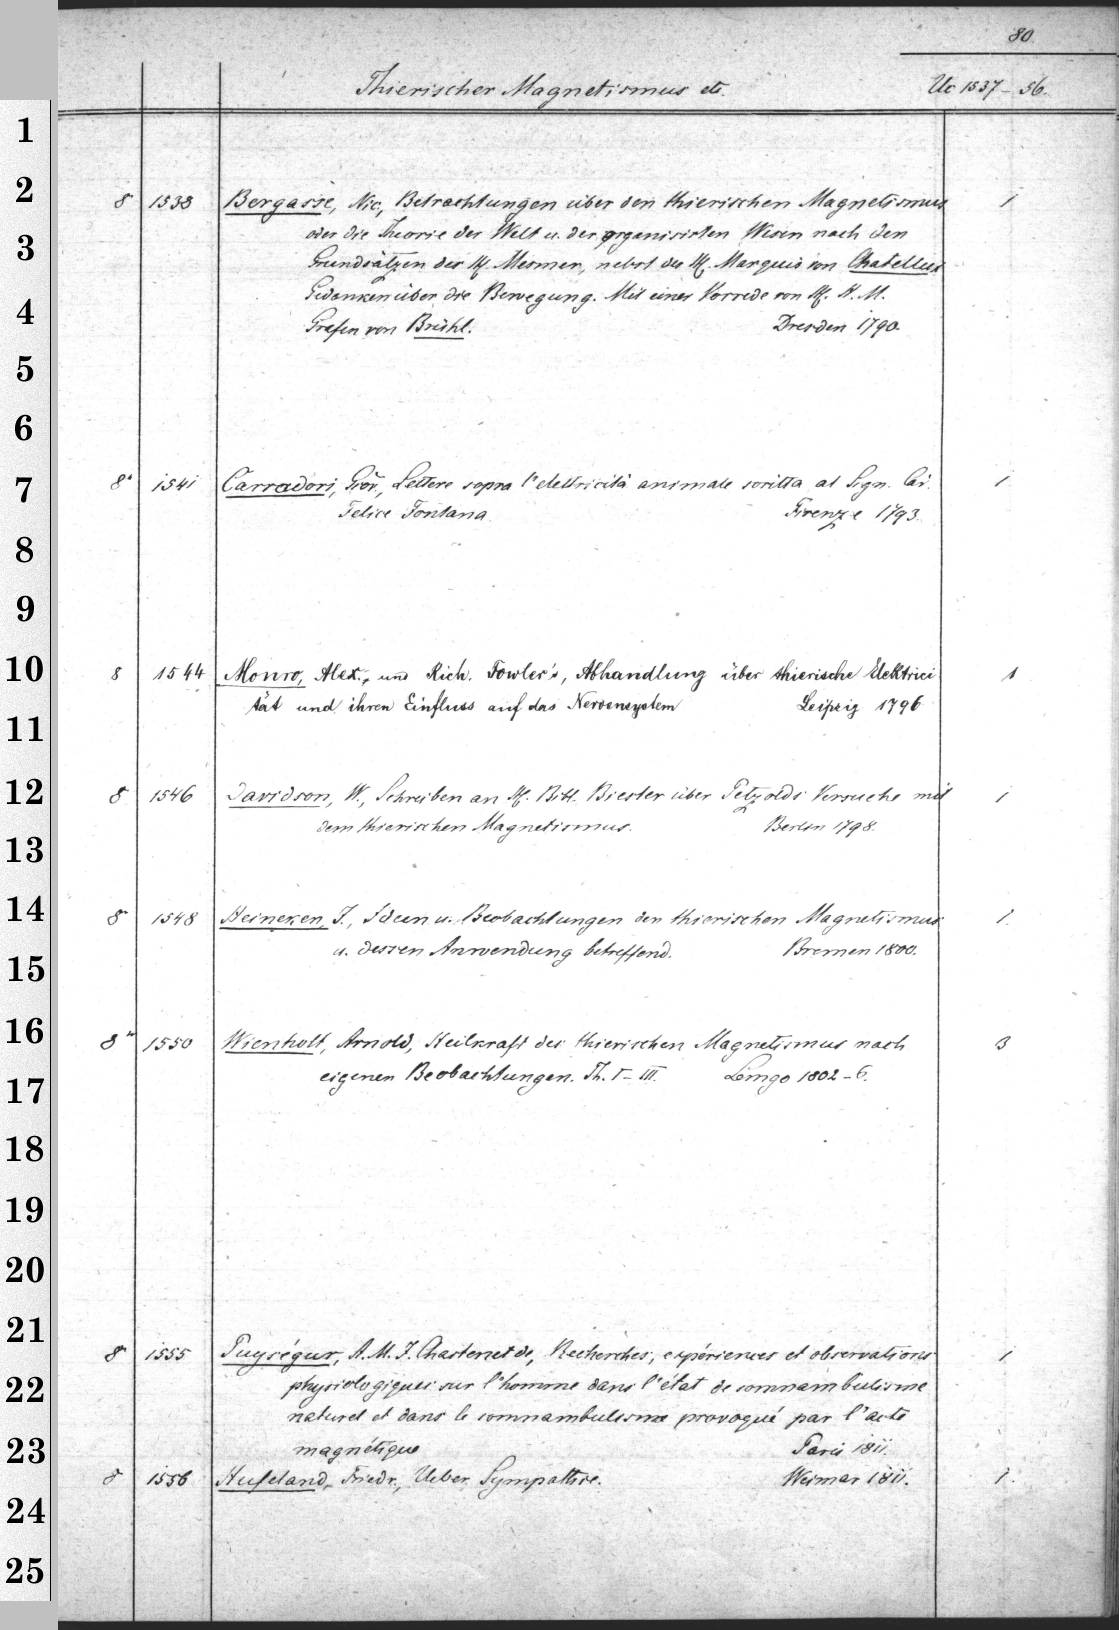 80
Thierischer Magnetismus etc.
Uc 1537-56.
1
2
3
4
5
6
7
8
9
10
11
12
13
14
15
16
17
18
19
20
21
22
23
24
25
8 1538 Bergasse, Nic., Betrachtungen über den thierischen Magnetismus 1
oder die Theorie der Welt u. der organisirten Wesen nach den
Grundsätzen des H. Mesmer, nebst des H. Marquis von Chatellux
Gedanken über die Bewegung. Mit einer Vorrede von H. H. M.
Grafen von Brühl. Dresden 1790.
8° 1541 Carradori, Giov., Lettere sopra l'elettricità animale scritta al Sign. Cav. 1
Felice Fontana Firenze 1793.
8 1544 Monro, Alex., und Rich. Fowler's, Abhandlung über thierische Elektrici 1
tät und ihren Einfluss auf das Nervensystem Leipzig 1796
8 1546 Davidson, W., Schreiben an H. Bibl. Biester über Petzolds Versuche mit 1
dem thierischen Magnetismus. Berlin 1798.
8 1548 Heineken, J., Ideen u. Beobachtungen den thierischen Magnetismus 1.
u. dessen Anwendung betreffend. Bremen 1800.
8° 1550 Wienholt, Arnold, Heilkraft des thierischen Magnetismus nach 3
eigenen Beobachtungen. Th. I-III. Lemgo 1802-6.
8 1555 Puységur, A. M. J. Chastenet de, Recherches, expériences et observations 1
physiologiques sur l'homme dans l'état de somnambulisme
naturel et dans le somnambulisme provoqué par l'acte
magnétique Paris 1811.
8 1556 Hufeland, Friedr., Ueber Sympathie. Weimar 1811. 1.